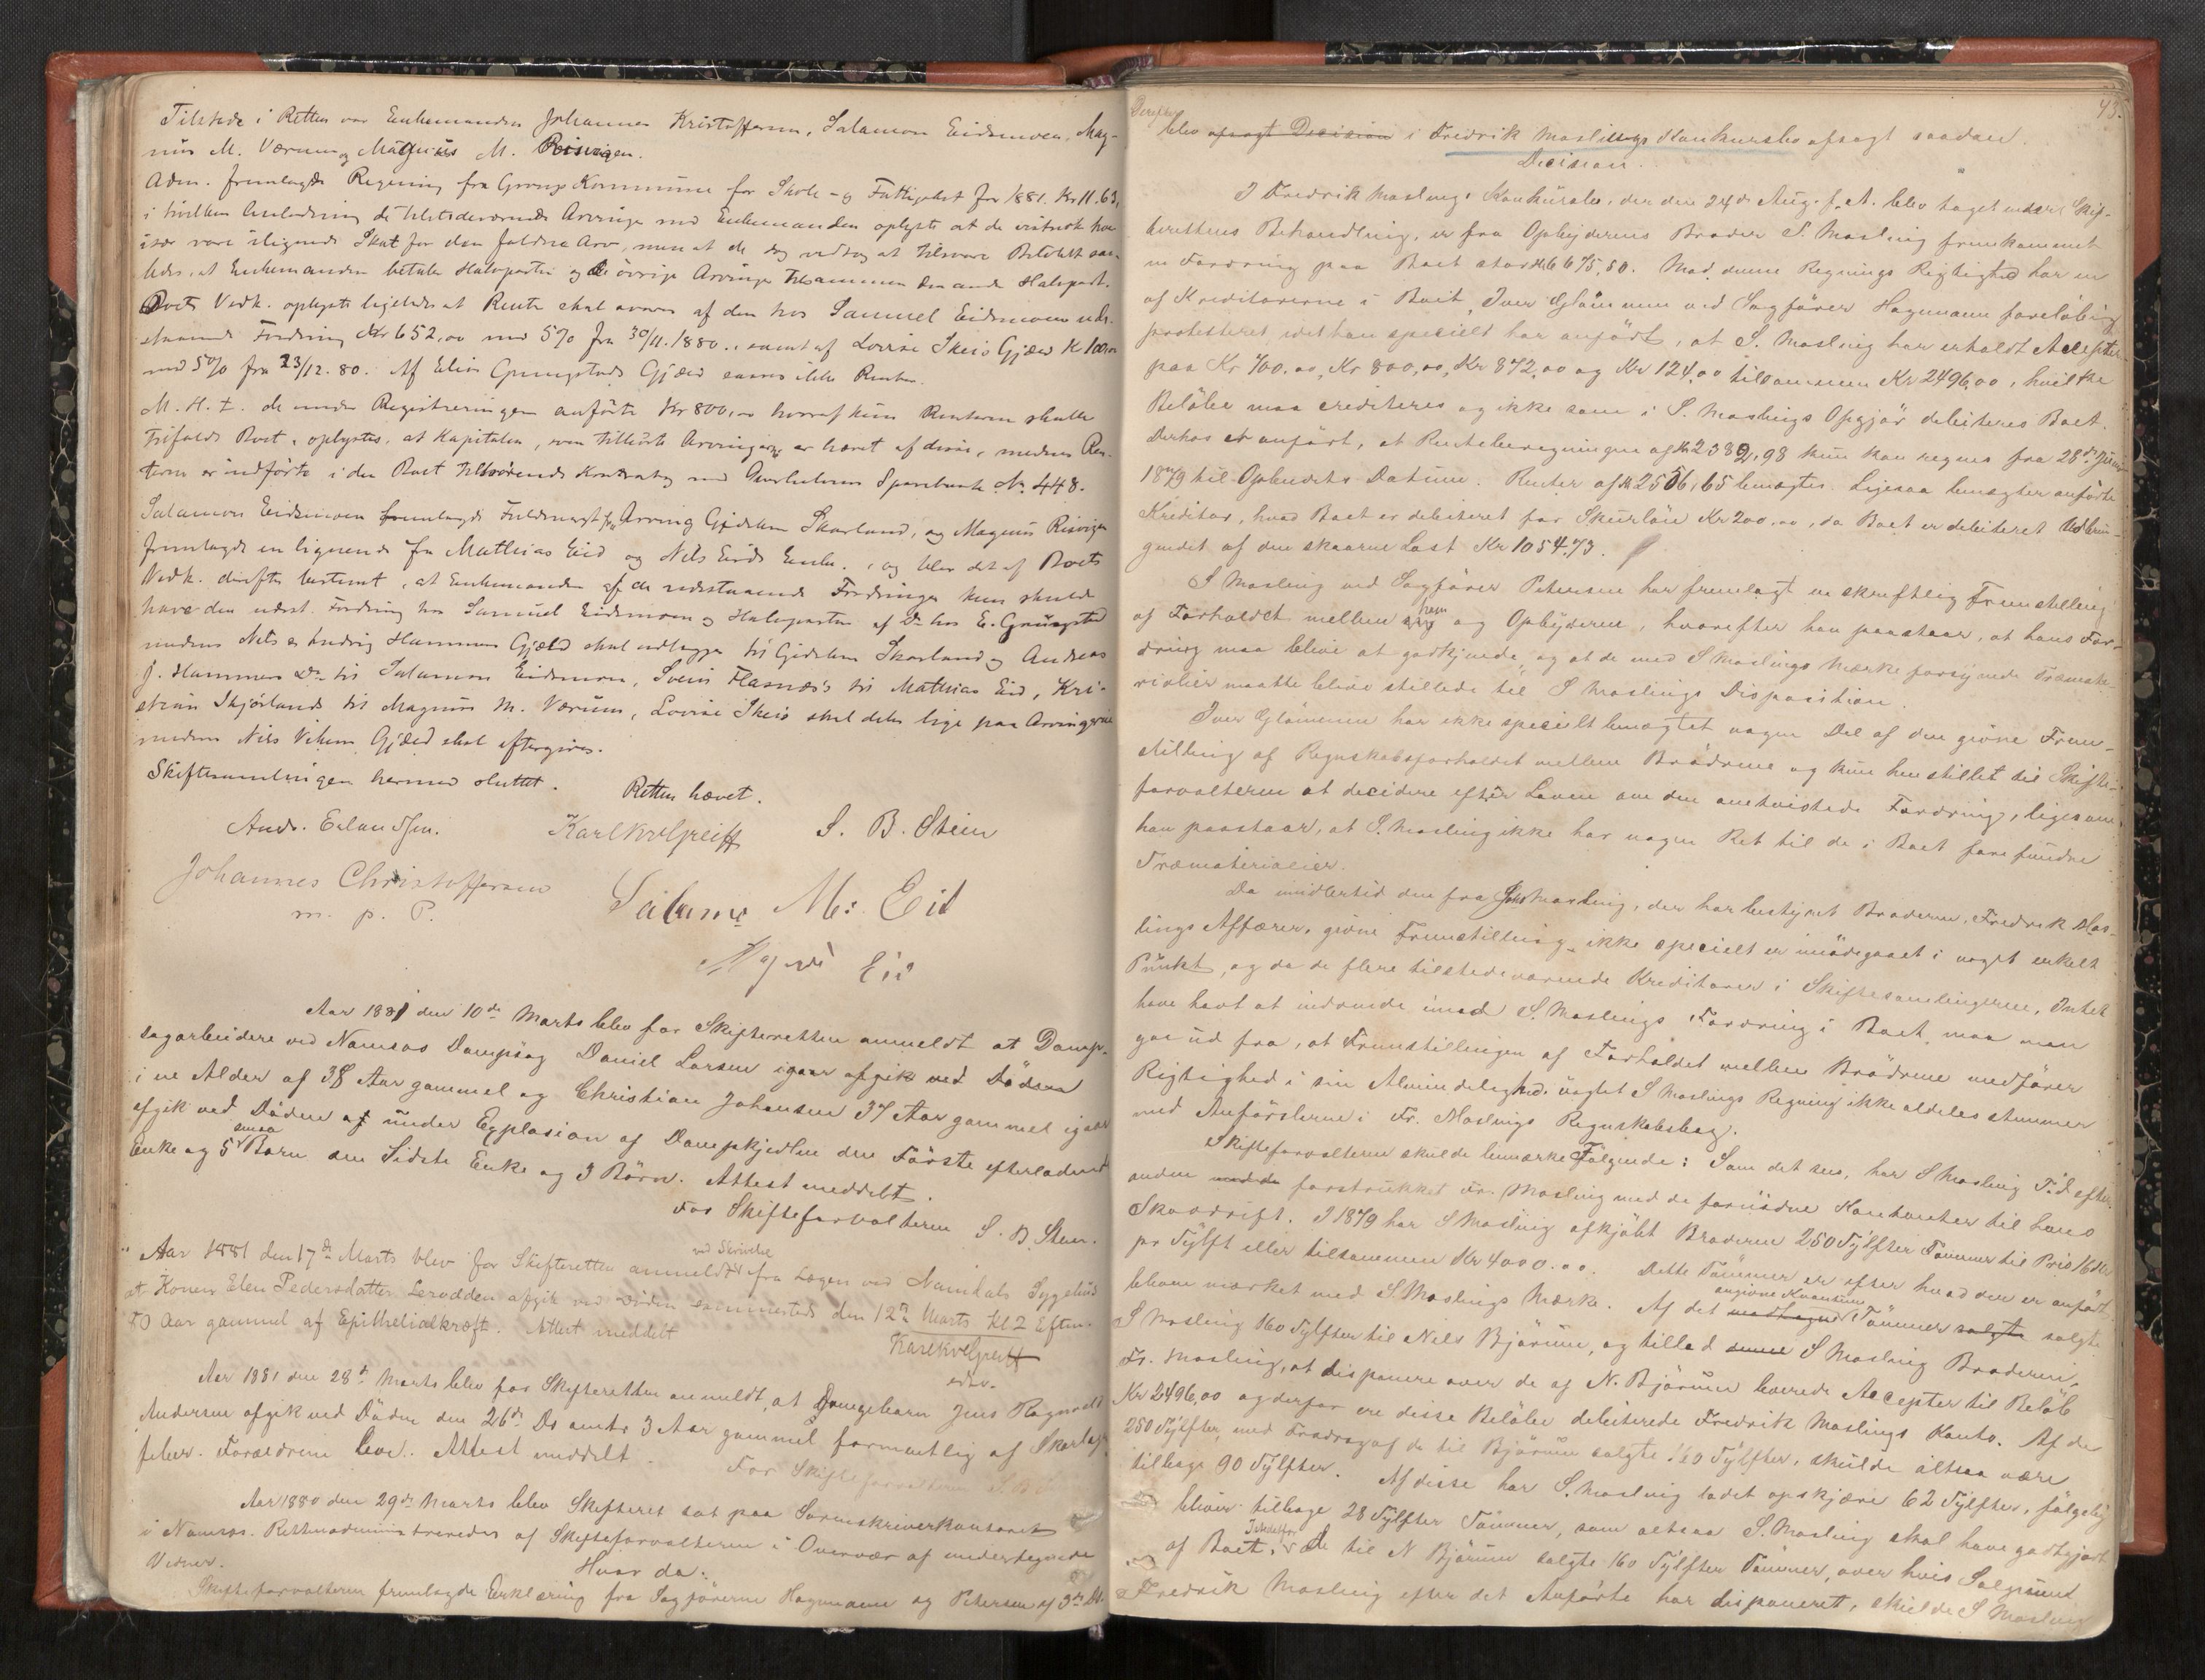 Tilstede i Retten var Enkemanden Johannes Kristoffersen, Salamon Eidsmoen, Mag-
nus M. Værum og Magnus M. Risvigen.
Adm. fremlagde Regning fra Grongs Kommune for Skole- og Fattigskat for 1881. Kr 11.63,
i hvilken Anledning de tilstedeværende Arvinge med Enkemanden oplyste at de
især være ilignede Skat for den faldne Arv, men at de dog vedtog at tilsvare Beløbet saa-
ledes, at Enkemanden betaler Halvparten og de øvrige Arvinge tilsammen den anden Halvpart.
Boets Vedk. oplyste ligeledes at Rente skal svares af den hos Samuel Eidsmoen ude-
staaende Fordring Kr 652,00 med 5% fra 30/11.1880., samt af Lovise Skeis Gjæld
med 5% fra 23/12.80. Af Elias Grungstads Gjæld svares ikke Renter.
M. H. t. de under Registreringen anførte Kr 800,00 hvoraf kun Renterne skulle
tilfalde Boet, oplystes, at Kapitalen, som tilhørte Arvingerne er hævet af disse, medens Ren-
terne er indførte i den Boet tilhørende Kontrabog med Overhalvens Sparebank No 448.
Salamon Eidsmoen fremlagde Fuldmagt fra Arving Gjertine Skarland, og Magnus Risvigen
fremlagde en lignende fra Mathias Eid og Nils Eids Enke., og blev det af Boets
Vedk. derefter bestemt, at Enkemanden af de udestaaende Fordringer kun skulde
have den udest. Fordring hos Samuel Eidsmoen og Halvparten af Do hos E. Grungstad
medens Nils og Andrig Hammers Gjæld skal udlægges til Skarland og Andreas
J. Hammers Do til Salamon Eidsmoen, Svein Flasnæs's til Mathias Eid, Kri-
stian Skjørlands til Magnus M. Værum, Lovise Skeis skal deles lige paa Arvingerne
medens Nils Vikens Gjæld skal eftergives.
Skiftesamlingen hermed sluttet.
Retten hævet.
Andr. Erlandsen. Karl S. B. Stein
Johannes Christoffersen
m. p. P.
Salamo M: Eid
Eid
Aar 1881 den 10de Marts blev for Skifteretten anmeldt at Damp-
sagarbeidere ved Namsos Dampsag Daniel Larsen igaar afgik ved Døden
i en Alder af 38 Aar gammel og Christian Johansen 37 Aar gammel igaar
afgik ved Døden af under Explosion af Dampkjedlen den Første efterladende
Enke og 5 smaa Børn den Sidste Enke og 3 Børn. Attest meddelt.
For Skifteforvalteren S. B. Stein.
Aar 1881 den 17de Marts blev for Skifteretten anmeldt ved Skrivelse fra Lægen ved Namdals Sygehus
at Konen Elen Pedersdatter afgik ved Døden sammesteds den 12te Marts Kl 2 Efterm.
70 Aar gammel af Epithelialkræft. Attest meddelt
Karl
edsv.
Aar 1881 den 28de Marts blev for Skifteretten anmeldt, at Drengebarn Jens Ragnvald
Andersen afgik ved Døden den 26de Ds omtr 3 Aar gammel formentlig af Skarlags-
feber. Forældrene leve. Attest meddelt.
For Skifteforvalteren S. B. S.
Aar 1880 den 29de Marts blev Skifteret sat paa Sorenskriverkontoret
i Namsos. Retten administreredes af Skifteforvalteren i Overvær af undertegnede
Vidner.
Hvor da:
Skifteforvalteren fremlagde Erklæring fra Sagførerne Hagemann og Petersen af 3de Ds.
43.
Derefter
blev afsagt Decision i Fredrik Maslings Konkursbo afsagt saadan
Decision.
I Fredrik Maslings Konkursbo, der den 24de Aug. f. A. blev taget under Skif-
terettens Behandling, er fra Opbyderens Broder S. Masling fremkommet
en Fordring paa Boet stor Kr 6675,50. Mod denne Regnings Rigtighed har en
af Kreditorerne i Boet, Iver Glømmen ved Sagfører Hagemann foreløbig
protesteret, idet han specielt har anført, at S. Masling har erholdt Accepter
paa Kr 700.00, Kr 800,00, Kr 872,00 og Kr 124,00 tilsammen Kr 2496,00, hvilke
Beløbe maa crediteres og ikke som i S. Maslings Opgjør debiteres Boet.
Derhos er anført, at Renteberegningen af Kr 2382,98 kun kan regnes fra 28de Juni
1879 til Opbudets Datum. Renter af Kr 2506,65 benægtes. Ligesaa benægter anførte
Kreditor, hvad Boet er debiteret for Skurløn Kr 200.00, da Boet er debiteret Udbrin-
gendet af den skaarne Last Kr 1054.73.
S Masling ved Sagfører Petersen har fremlagt en skriftlig Fremstilling
af Forholdet mellem sig ham og Opbyderen, hvorefter han paastaar, at hans For-
dring maa blive at godkjende, og at de med S Maslings Mærke forsynede Træmate-
rialier maatte blive stillede til S Maslings Disposition.
Iver Glømmen har ikke specielt benægtet nogen Del af den givne Frem-
stilling af Regnskabsforholdet mellem Brødrene og kun henstillet til Skifte-
forvalteren at decidere efter Loven om den omtvistede Fordring, ligesom
han paastaar, at S. Masling ikke har nogen Ret til de i Boet forefundne
Træmaterialier.
Da imidlertid den fra S Masling, der har bestyret Broderen, Fredrik Mas-
lings Affærer, givne Fremstilling ikke specielt er imødegaaet i noget enkelt
Punkt, og da de flere tilstedeværende Kreditorer i Skiftesamlingerne, Intet
have havt at indvende imod S. Maslings Fordring i Boet, maa man
gaa ud fra, at Fremstillingen af Forholdet mellem Brødrene medfører
Rigtighed i sin Almindelighed, uagtet S Maslings Regning ikke aldeles stemmer
med Anførslerne i Fr. Maslings Regnskabsbog.
Skifteforvalteren skulde bemærke Følgende: Som det sees, har S Masling Tid efter
anden med de forstrukket Fr. Masling med de fornødne Kontanter til hans
Skovdrift. I 1879 har S Masling afkjøbt Broderen 250 Tylfter Tømmer til Pris 16 Kr
pr Tylft eller tilsammen Kr 4000.00. Dette Tømmer er efter hvad der er anført
bleven mærket med S Maslings Mærke. Af det modtagne angivne Kvantum Tømmer solgte solgte
S Masling 160 Tylfter til Nils Bjørum, og tillod denne S Masling Broderen,
Fr. Masling, at disponere over de af N. Bjørum leverede Accepter til Beløb
Kr 2496,00 og derfor ere disse Beløbe debiterede Fredrik Maslings Konto. Af de
250 Tylfter, med Fradrag af de til Bjørum solgte 160 Tylfter, skulde altsaa være
tilbage 90 Tylfter. Af disse har S. Masling ladet opskjære 62 Tylfter, følgelig
bliver tilbage 28 Tylfter Tømmer, som altsaa S. Masling skal have godtgjort
af Boet. Istedetfor De til N Bjørum solgte 160 Tylfter Tømmer, over hvis Salgssum
Fredrik Masling efter det Anførte har disponeret, skulde S Masling